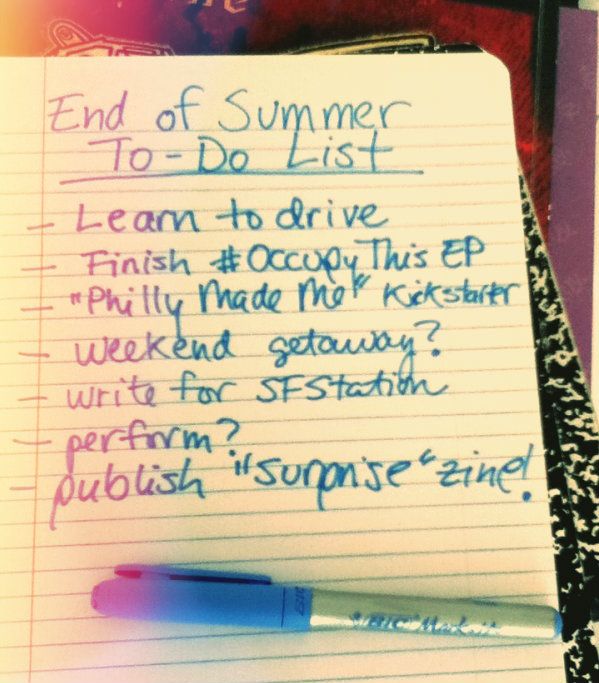 End of Summer
To-Do List
- Learn to drive
- Finish #OccupyThis EP
- "Philly Made Me" Kickstarter
- weekend getaway?
- write for SFStation
- perform?
- publish "surprise" zine!
BIC